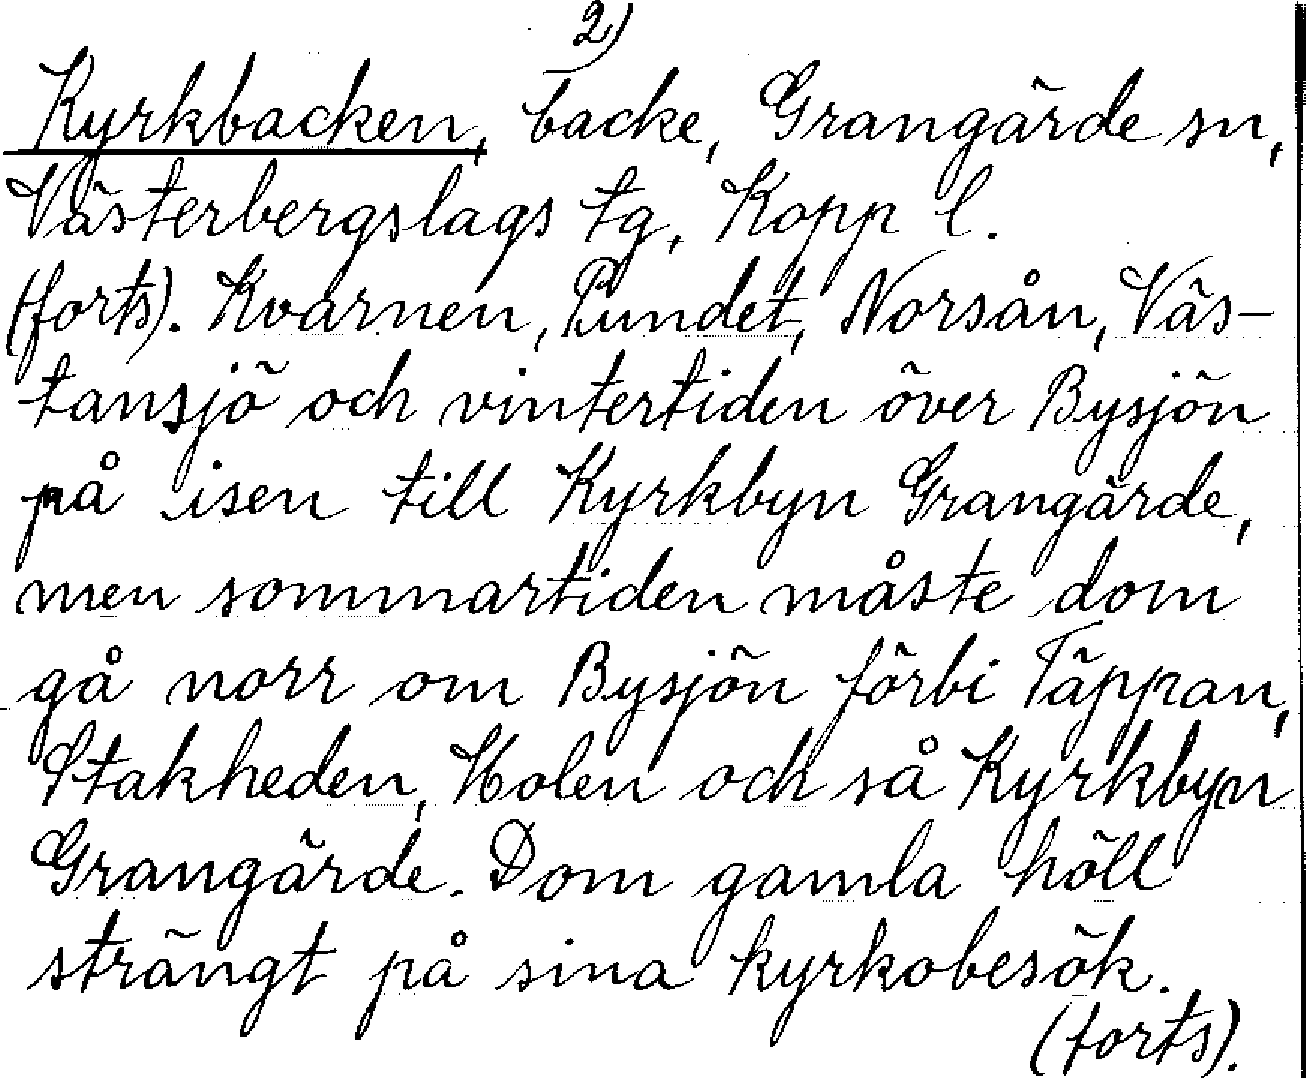 2)
Kyrkbacken, backe, Grangärde sn,
Västerbergslags tg, Kopp l.
(forts). Kvarnen, Pundet, Norsån, Väs-
tansjö och vintertiden över Bysjön
på isen till Kyrkbyn Grangärde,
men sommartiden måste dom
gå norr om Bysjön förbi Täppan,
Stakheden, Holen och så Kyrkbyn
Grangärde. Dom gamla höll
strängt på sina kyrkobesök.
(forts).